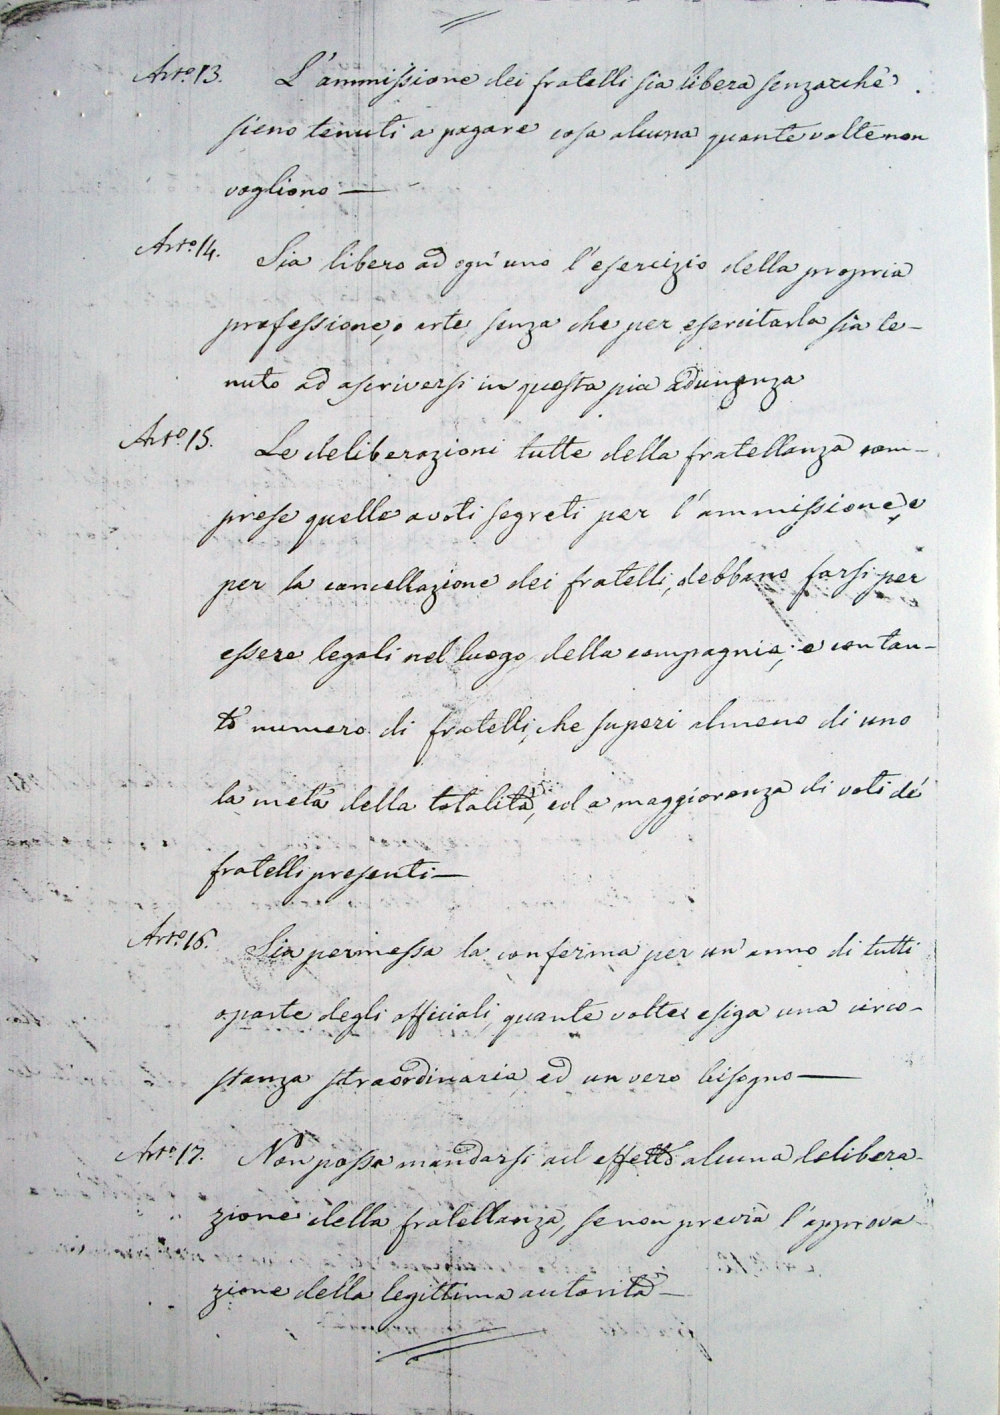 Art.o 13. L'ammissione dei fratelli sia libera senzacchè
sieno tenuti a pagare cosa alcuna quante volte non
vogliono —
Art.o 14. Sia libero ad ogn'uno l'esercizio della propria
professione, o arte, senza che per esercitarla sia te-
nuto ad ascriversi in questa pia adunanza
Art.o 15. Le deliberazioni tutte della fratellanza com-
prese quelle a voti segreti per l'ammissione, e
per la cancellazione dei fratelli, debbano farsi per
essere legali nel luogo della compagnia; e con tan-
to numero di fratelli, che superi almeno di uno
la metà della totalità, ed a maggioranza di voti de'
fratelli presenti —
Art.o 16. Sia permessa la conferma per un anno di tutti
o parte degli officiali, quante volte esiga una circo-
stanza straordinaria, ed un vero bisogno —
Art.o 17. Non possa mandarsi ad effetto alcuna delibera-
zione della fratellanza, se non previa l'approva-
zione della legittima autorità —